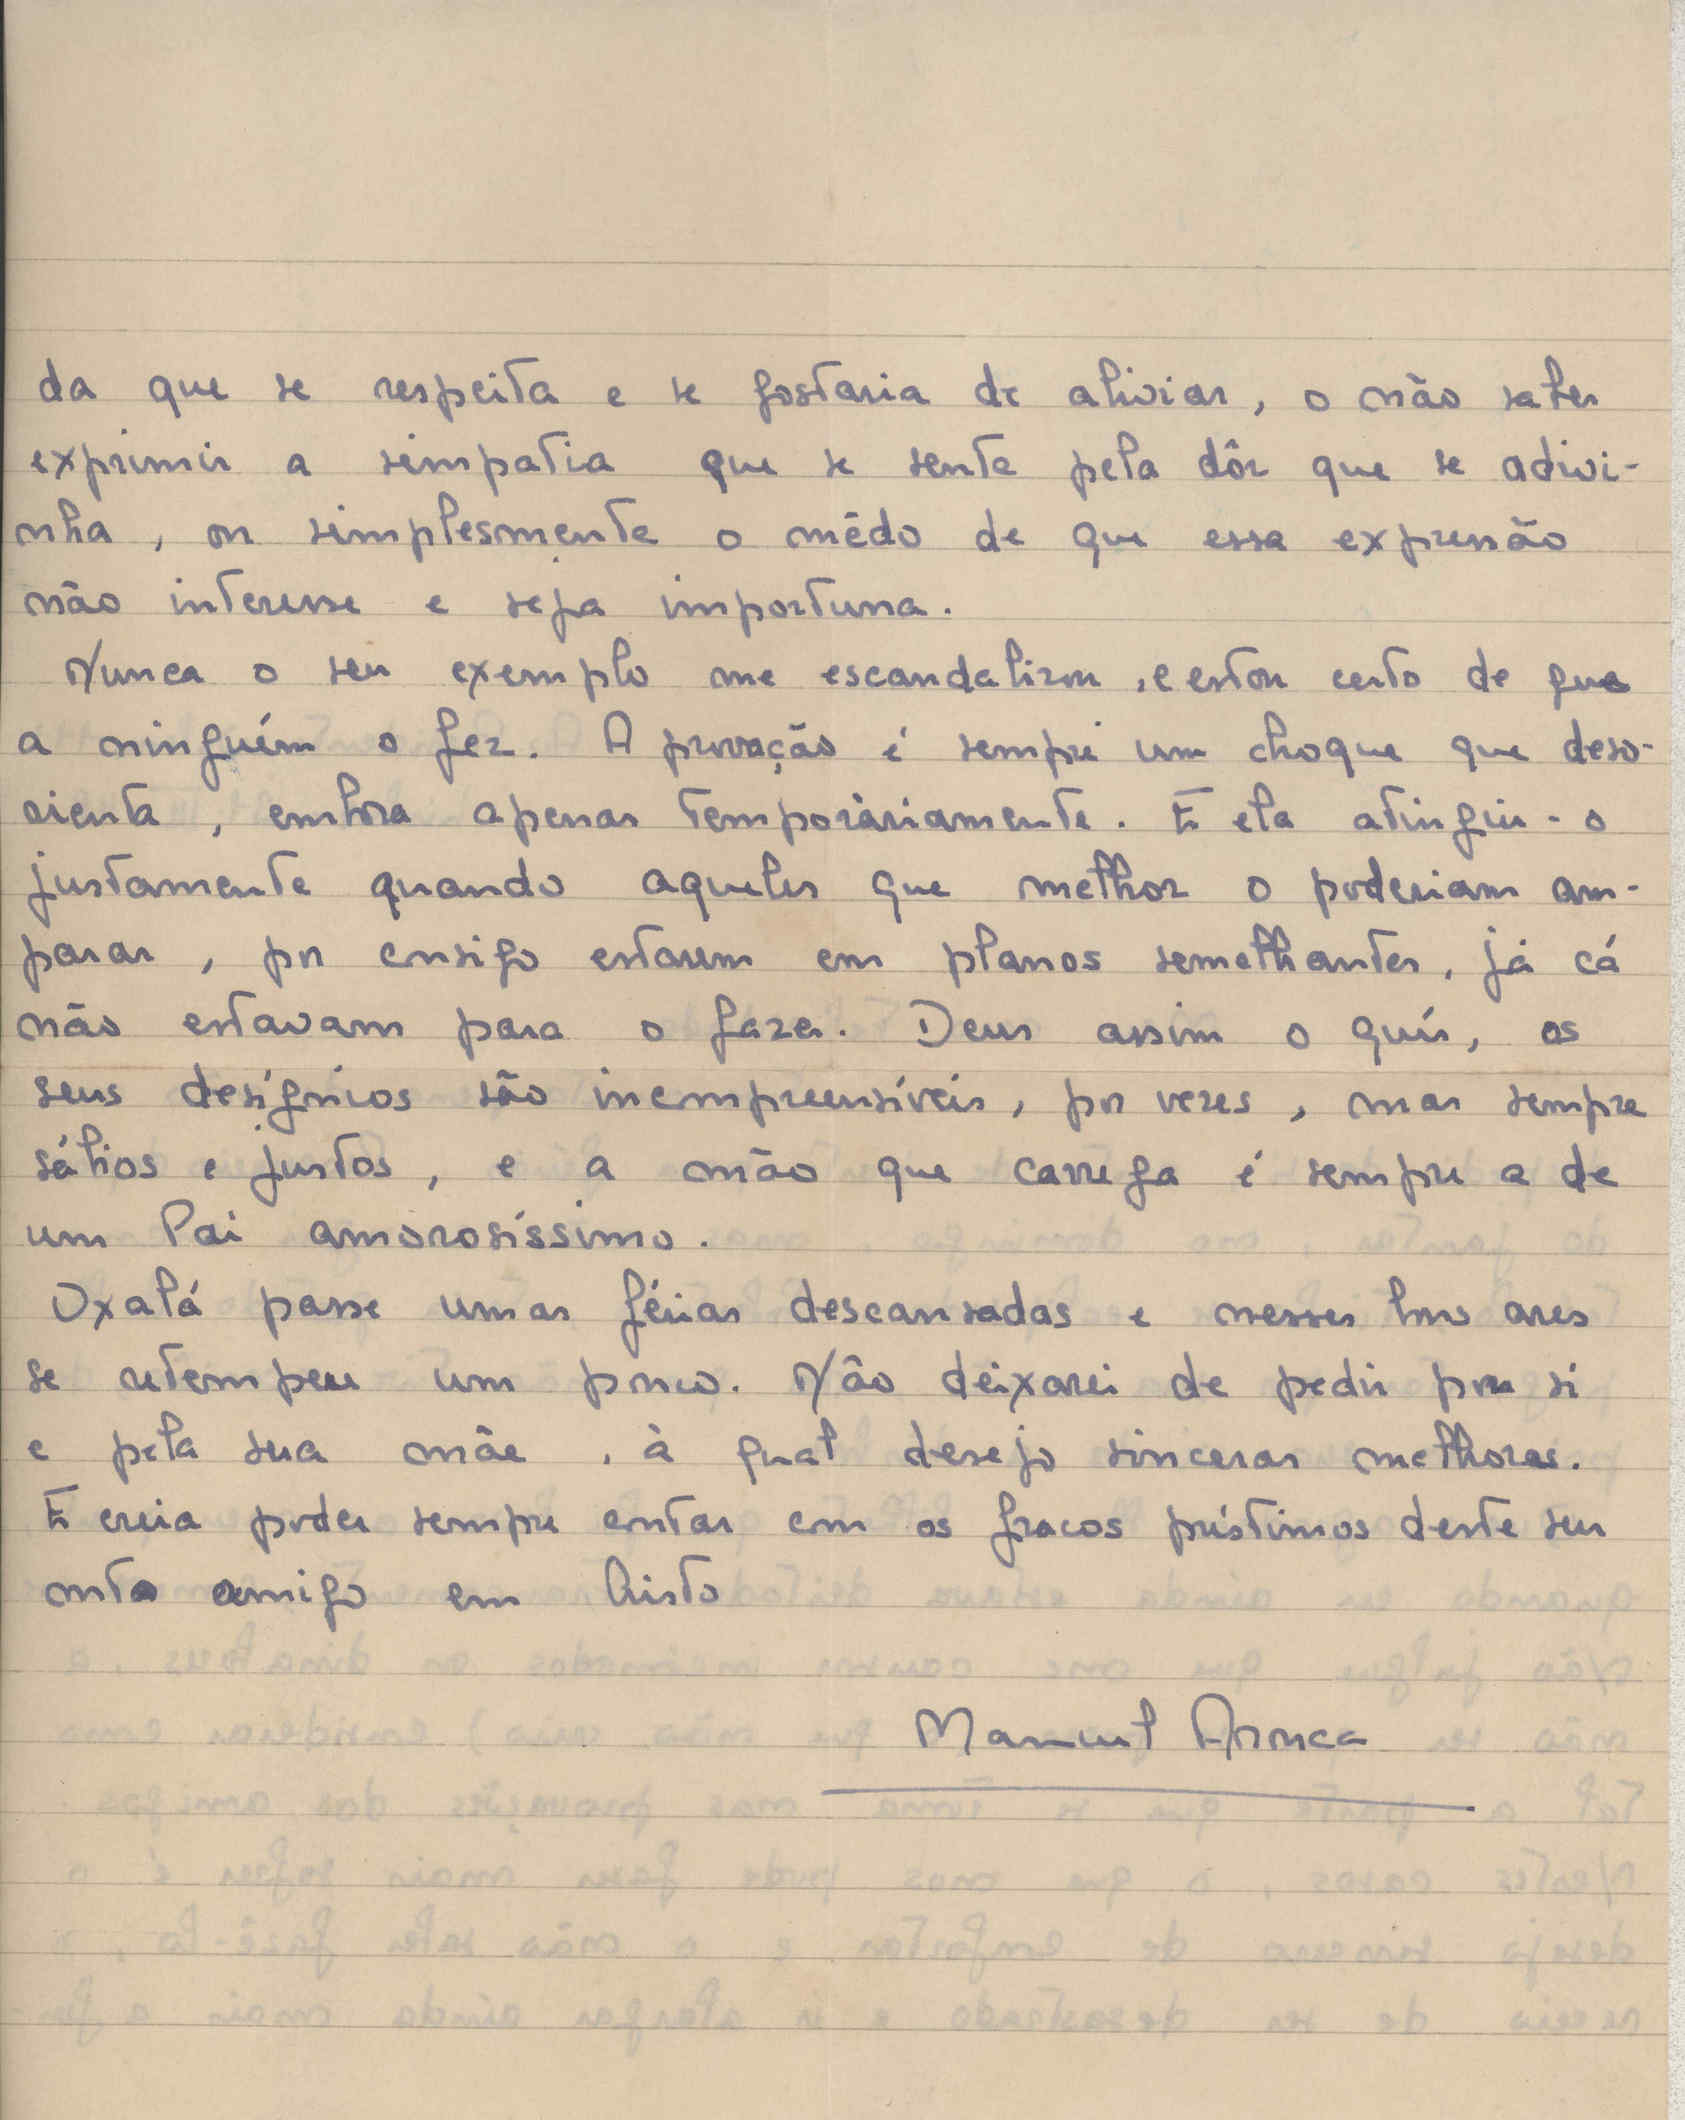 da que se respeita e se gostaria de aliviar, o não saber
exprimir a simpatia que se sente pela dôr que se adivi-
nha, ou simplesmente o mêdo de que essa expressão
não interesse e seja importuna.
Nunca o seu exemplo me escandalizou, e estou certo de que
a ninguém o fez. A provação é sempre um choque que deso-
rienta, embora apenas temporàriamente. E ela atingiu-o
justamente quando aqueles que melhor o poderiam am-
parar, por consigo estarem em planos semelhantes, já cá
não estavam para o fazer. Deus assim o quís, os
seus desígnios são incompreensíveis, por vezes, mas sempre
sábios e justos, e a mão que carrega é sempre a de
um Pai amorosíssimo.
Oxalá passe umas férias descansadas e nesses bons ares
se retempere um pouco. Não deixarei de pedir por si
e pela sua mãe, à qual desejo sinceras melhoras.
E creia poder sempre contar com os fracos préstimos deste seu
mto amigo em Cristo
Manuel